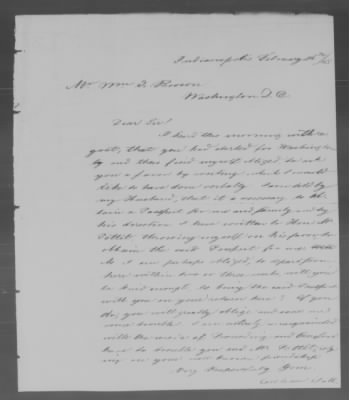 Indianapolis February
Mr Wm J. Brown
Washington D.C.
Dear Sir!
I heard this morning with re-
gret, that you had started for Washington
and thus find myself obliged to ask
you a favor by writing which I would
like to have done verbally I am told by
my Husband, that it is necessary to ob-
tain a Passport for me and family and by
his direction I have written to Hon. Mr
Pettit throwing myself on his favor, to
obtain the said Passport for me
As I am perhaps obliged, to depart from
here within two or three weeks will you
be kind enough, to bring the said Passport
with you on your return here? If you
do, you will greatly oblige and save me
some trouble. I am utterly unacquainted
with the ways of and therefore
have to trouble you and Mr Pettit,
ing on your well known friendship
Very Respectfully Yours